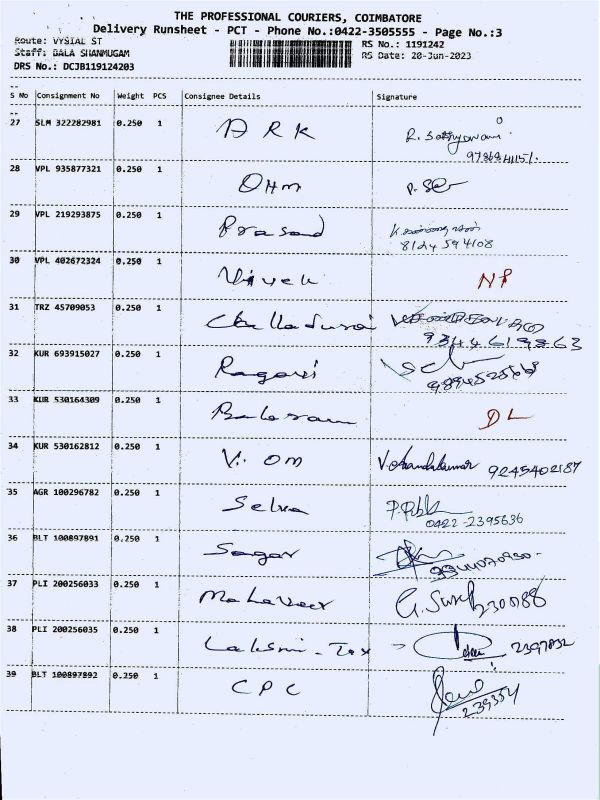 THE PROFESSIONAL COURIERS, COIMBATORE
Delivery Runsheet - PCT - Phone No.:0422-3505555 - Page No.:3
Route: VYSIAL ST
RS No.: 1191242
Staff: BALA SHANMUGAM
RS Date: 20-Jun-2023
DRS No.: DCJB119124203
S No Consignment No Weight PCS Consignee Details Signature
27 SLM 322282981 0.250 1 ARK R.
28 VPL 935877321 0.250 1 OHM P.
29 VPL 219293875 0.250 1 Prasand
8124594108
30 VPL 402672324 0.250 1 Vivek NP
31 TRZ 45709053 0.250 1 Chelladurai
9344619863
32 KUR 693915027 0.250 1 Ragavi
33 KUR 530164309 0.250 1 Balaram DL
34 KUR 530162812 0.250 1 V. OM V. Chandrakumar 9245402187
35 AGR 100296782 0.250 1 Selva
0422-2395636
36 BLT 100897891 0.250 1 Sagar
37 PLI 200256033 0.250 1 Mahaveer G.
38 PLI 200256035 0.250 1 Laksmi-Tex
39 BLT 100897892 0.250 1 CPC
239354